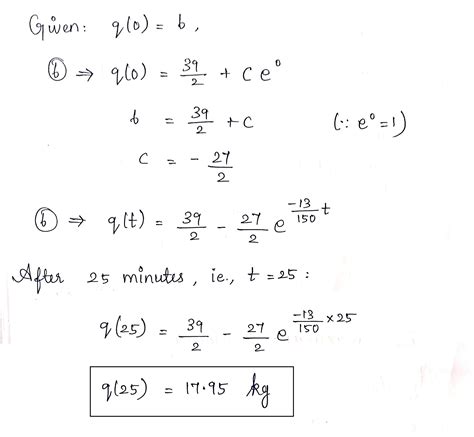 Given: q(0) = 6,
⑥ ⇒ q(0) = 39/2 + C e^0
6 = 39/2 + C (∵ e^0 = 1)
C = - 27/2
⑥ ⇒ q(t) = 39/2 - 27/2 e^(-13/150 t)
After 25 minutes, ie., t = 25 :
q(25) = 39/2 - 27/2 e^(-13/150 × 25)
q(25) = 17.95 kg